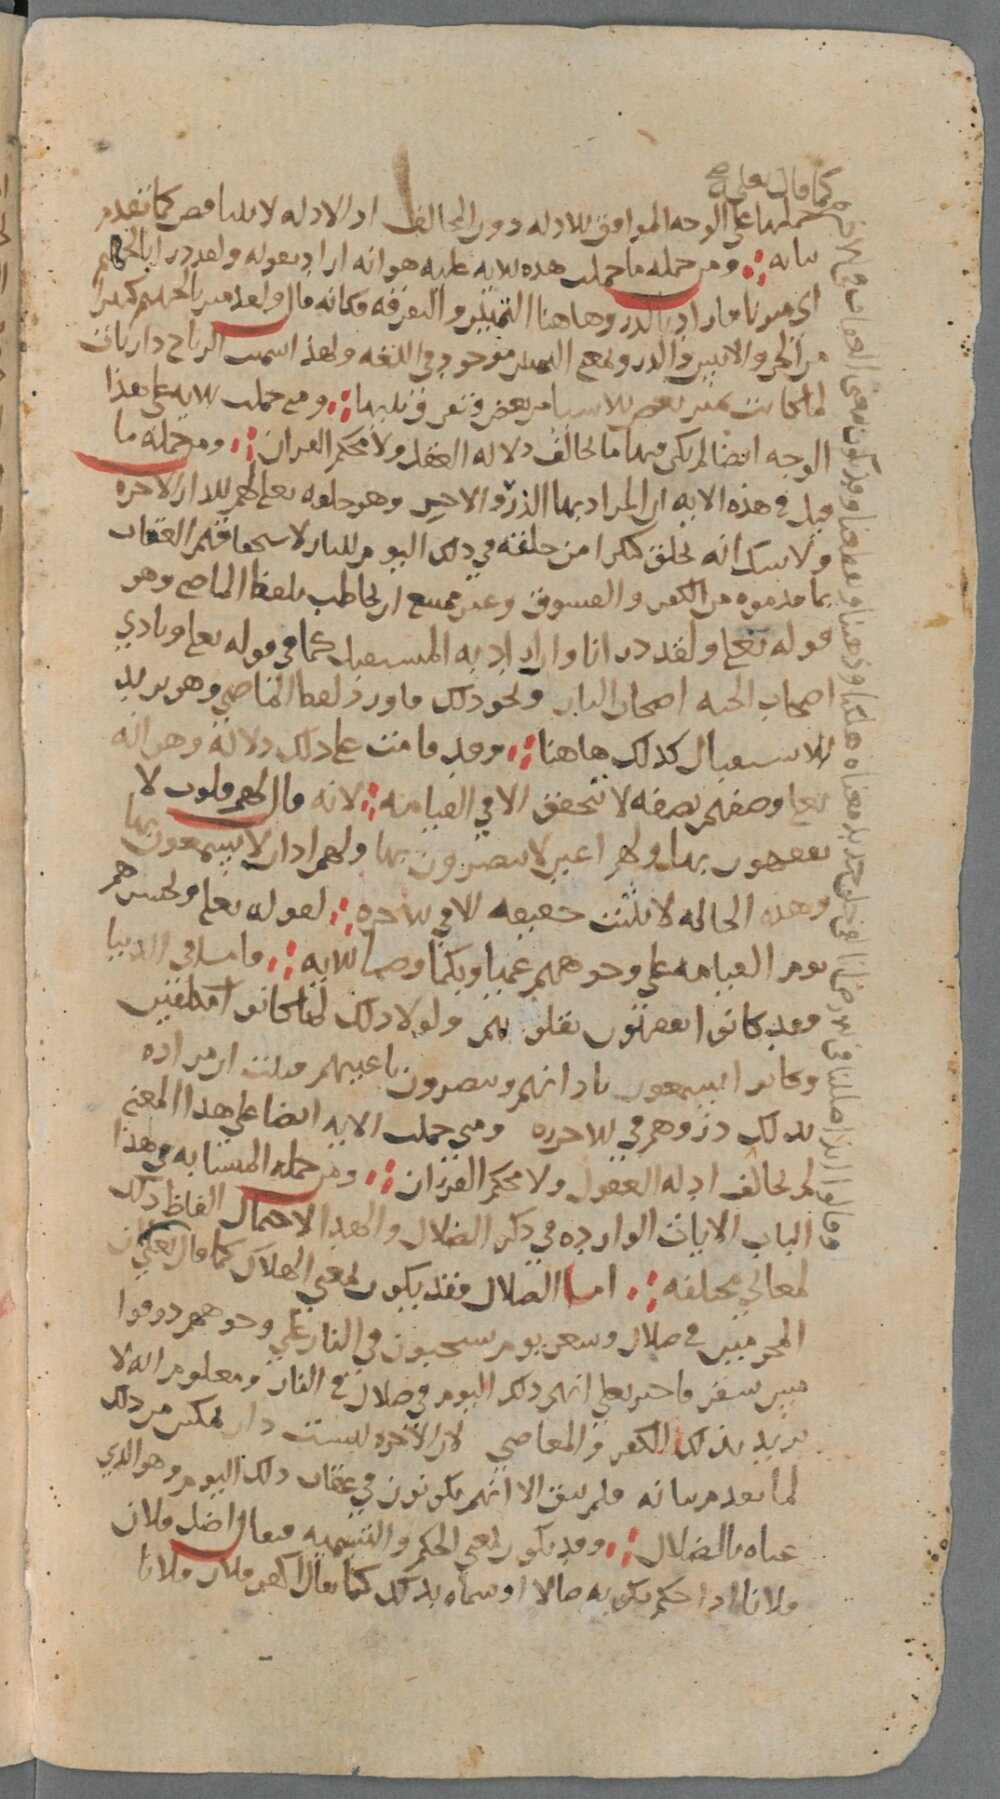 حملها على الوجه الموافق للادله دون المخالف اذ الادله لا تتناقض كما تقدم
بيانه ومن جمله ما حملت هذه الايه عليه هو انه اراد بقوله ولقد ذرانا لجهنم
اي ميزنا فاراد بالذرو هاهنا التمييز والتفرقه فكانه قال ولقد ميزنا لجهنم كثيرا
من الجن والانس والذرو بمعنى التمييز موجود في اللغه ولهذا سميت الرياح ذاريات
لما كانت تميز بعض الاشيا من بعض وتفرق بينها ومتى حملت الايه على هذا
الوجه ايضا لم يكن فيها ما يخالف دلاله العقل ولا محكم القران ومن جمله ما
قيل في هذه الايه ان المراد بها الذرو الاخير وهو خلقه تعالى لهم للدار الاخره
ولا شك انه يخلق كثيرا من خلقه في ذلك اليوم للنار لاستحقاقهم العقاب
بما قدموه من الكفر والفسوق وغير ممتنع ان يخاطب بلفظ الماضي وهو
قوله تعالى ولقد ذرانا وان اراد به المستقبل كما في قوله تعالى ونادى
اصحاب الجنه اصحاب النار ونحو ذلك فاورد لفظ الماضي وهو يريد
الاستقبال كذلك هاهنا وقد قامت على ذلك دلالة وهو انه
تعالى وصفهم بصفه لا تتحقق الا في القيامه لانه قال لهم قلوب لا
يفقهون بها ولهم اعين لا يبصرون بها ولهم اذان لا يسمعون بها
وهذه الحاله لا تثبت حقيقه الا في الاخره لقوله تعالى ونحشرهم
يوم القيامه على وجوههم عميا وبكما وصما الايه فاما في الدنيا
فقد كانوا يفقهون بقلوبهم ولولا ذلك لما كانوا مكلفين
وكانوا يسمعون باذانهم ويبصرون باعينهم فثبت ان مراده
بذلك ذروهم في الاخره ومتى حملت الايه ايضا على هذا المعنى
لم يخالف ادله العقول ولا محكم القران ومن جمله المتشابه في هذا
الباب الايات الوارده في ذكر الضلال والهدى لاحتمال الفاظ ذلك
لمعاني مختلفه اما الضلال فقد يكون بمعنى الهلاك كما قال تعالى ان
المجرمين في ضلال وسعر يوم يسحبون في النار على وجوههم ذوقوا
مس سقر فاخبر تعالى انهم ذلك اليوم في ضلال في النار ومعلوم انه لا
يريد بذلك الكفر والمعاصي لان الاخره ليست دار تمكين من ذلك
لما تقدم بيانه فلم يبق الا انهم يكونون في عقاب ذلك اليوم وهو الذي
عناه بالضلال وقد يكون بمعنى الحكم والتسميه فيقال اضل فلان
فلانا اذا حكم بكونه ضالا او سماه بذلك كما يقال اكفر فلان فلانا
كما قال تعلى